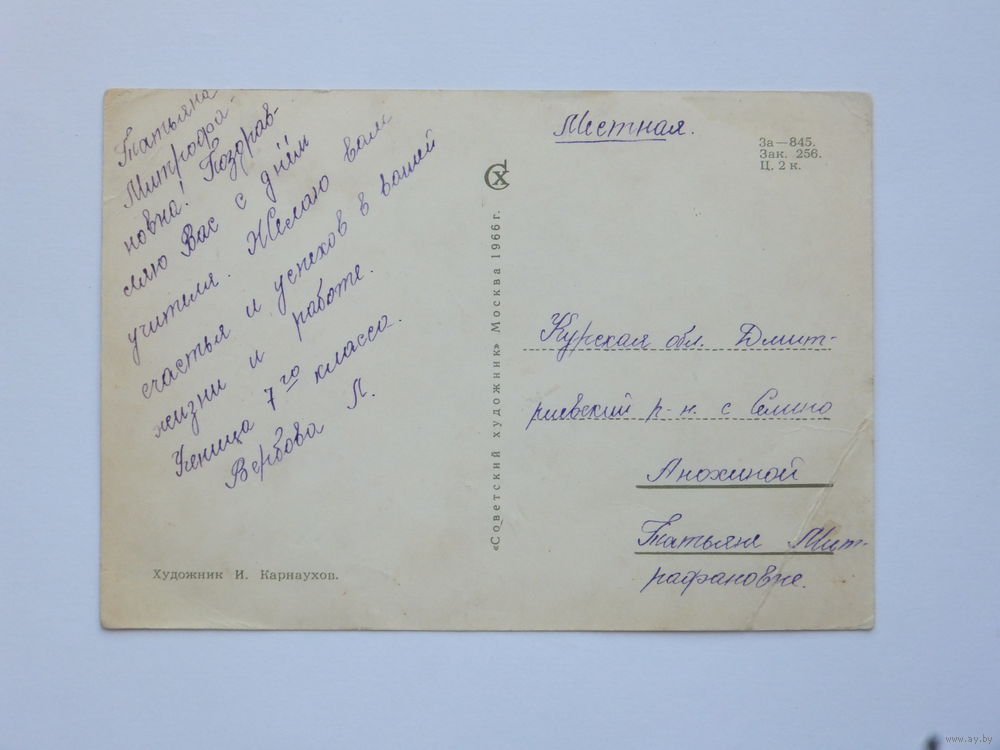 Татьяна
Митрофа-
новна! Поздрав-
ляю Вас с днём
учителя. Желаю вам
счастья и успехов в вашей
жизни и работе.
Ученица 7го класса.
Вербова Л.
Художник И. Карнаухов.
«Советский художник» Москва 1966 г.
СХ
Местная.
За—845.
Зак. 256.
Ц. 2 к.
Курская обл. Дмит-
риевский р-н. с Селино
Анохиной
Татьяне Мит-
рафановне.
www.ay.by